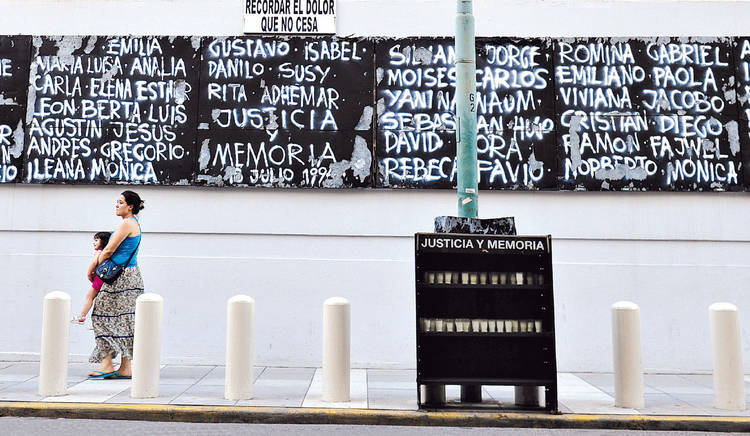 RECORDAR EL DOLOR
QUE NO CESA
EMILIA
MARIA LUISA ANALIA
CARLA ELENA ESTHER
LEON BERTA LUIS
AGUSTIN JESUS
ANDRES GREGORIO
ILEANA MONICA
GUSTAVO ISABEL
DANILO SUSY
RITA ADHEMAR
JUSTICIA
Y
MEMORIA
JULIO
JORGE
MOISES CARLOS
NAUM
DAVID
REBECA FAVIO
ROMINA GABRIEL
EMILIANO PAOLA
VIVIANA JACOBO
CRISTIAN DIEGO
RAMON FAJWLL
NORBERTO MONICA
G
2
JUSTICIA Y MEMORIA